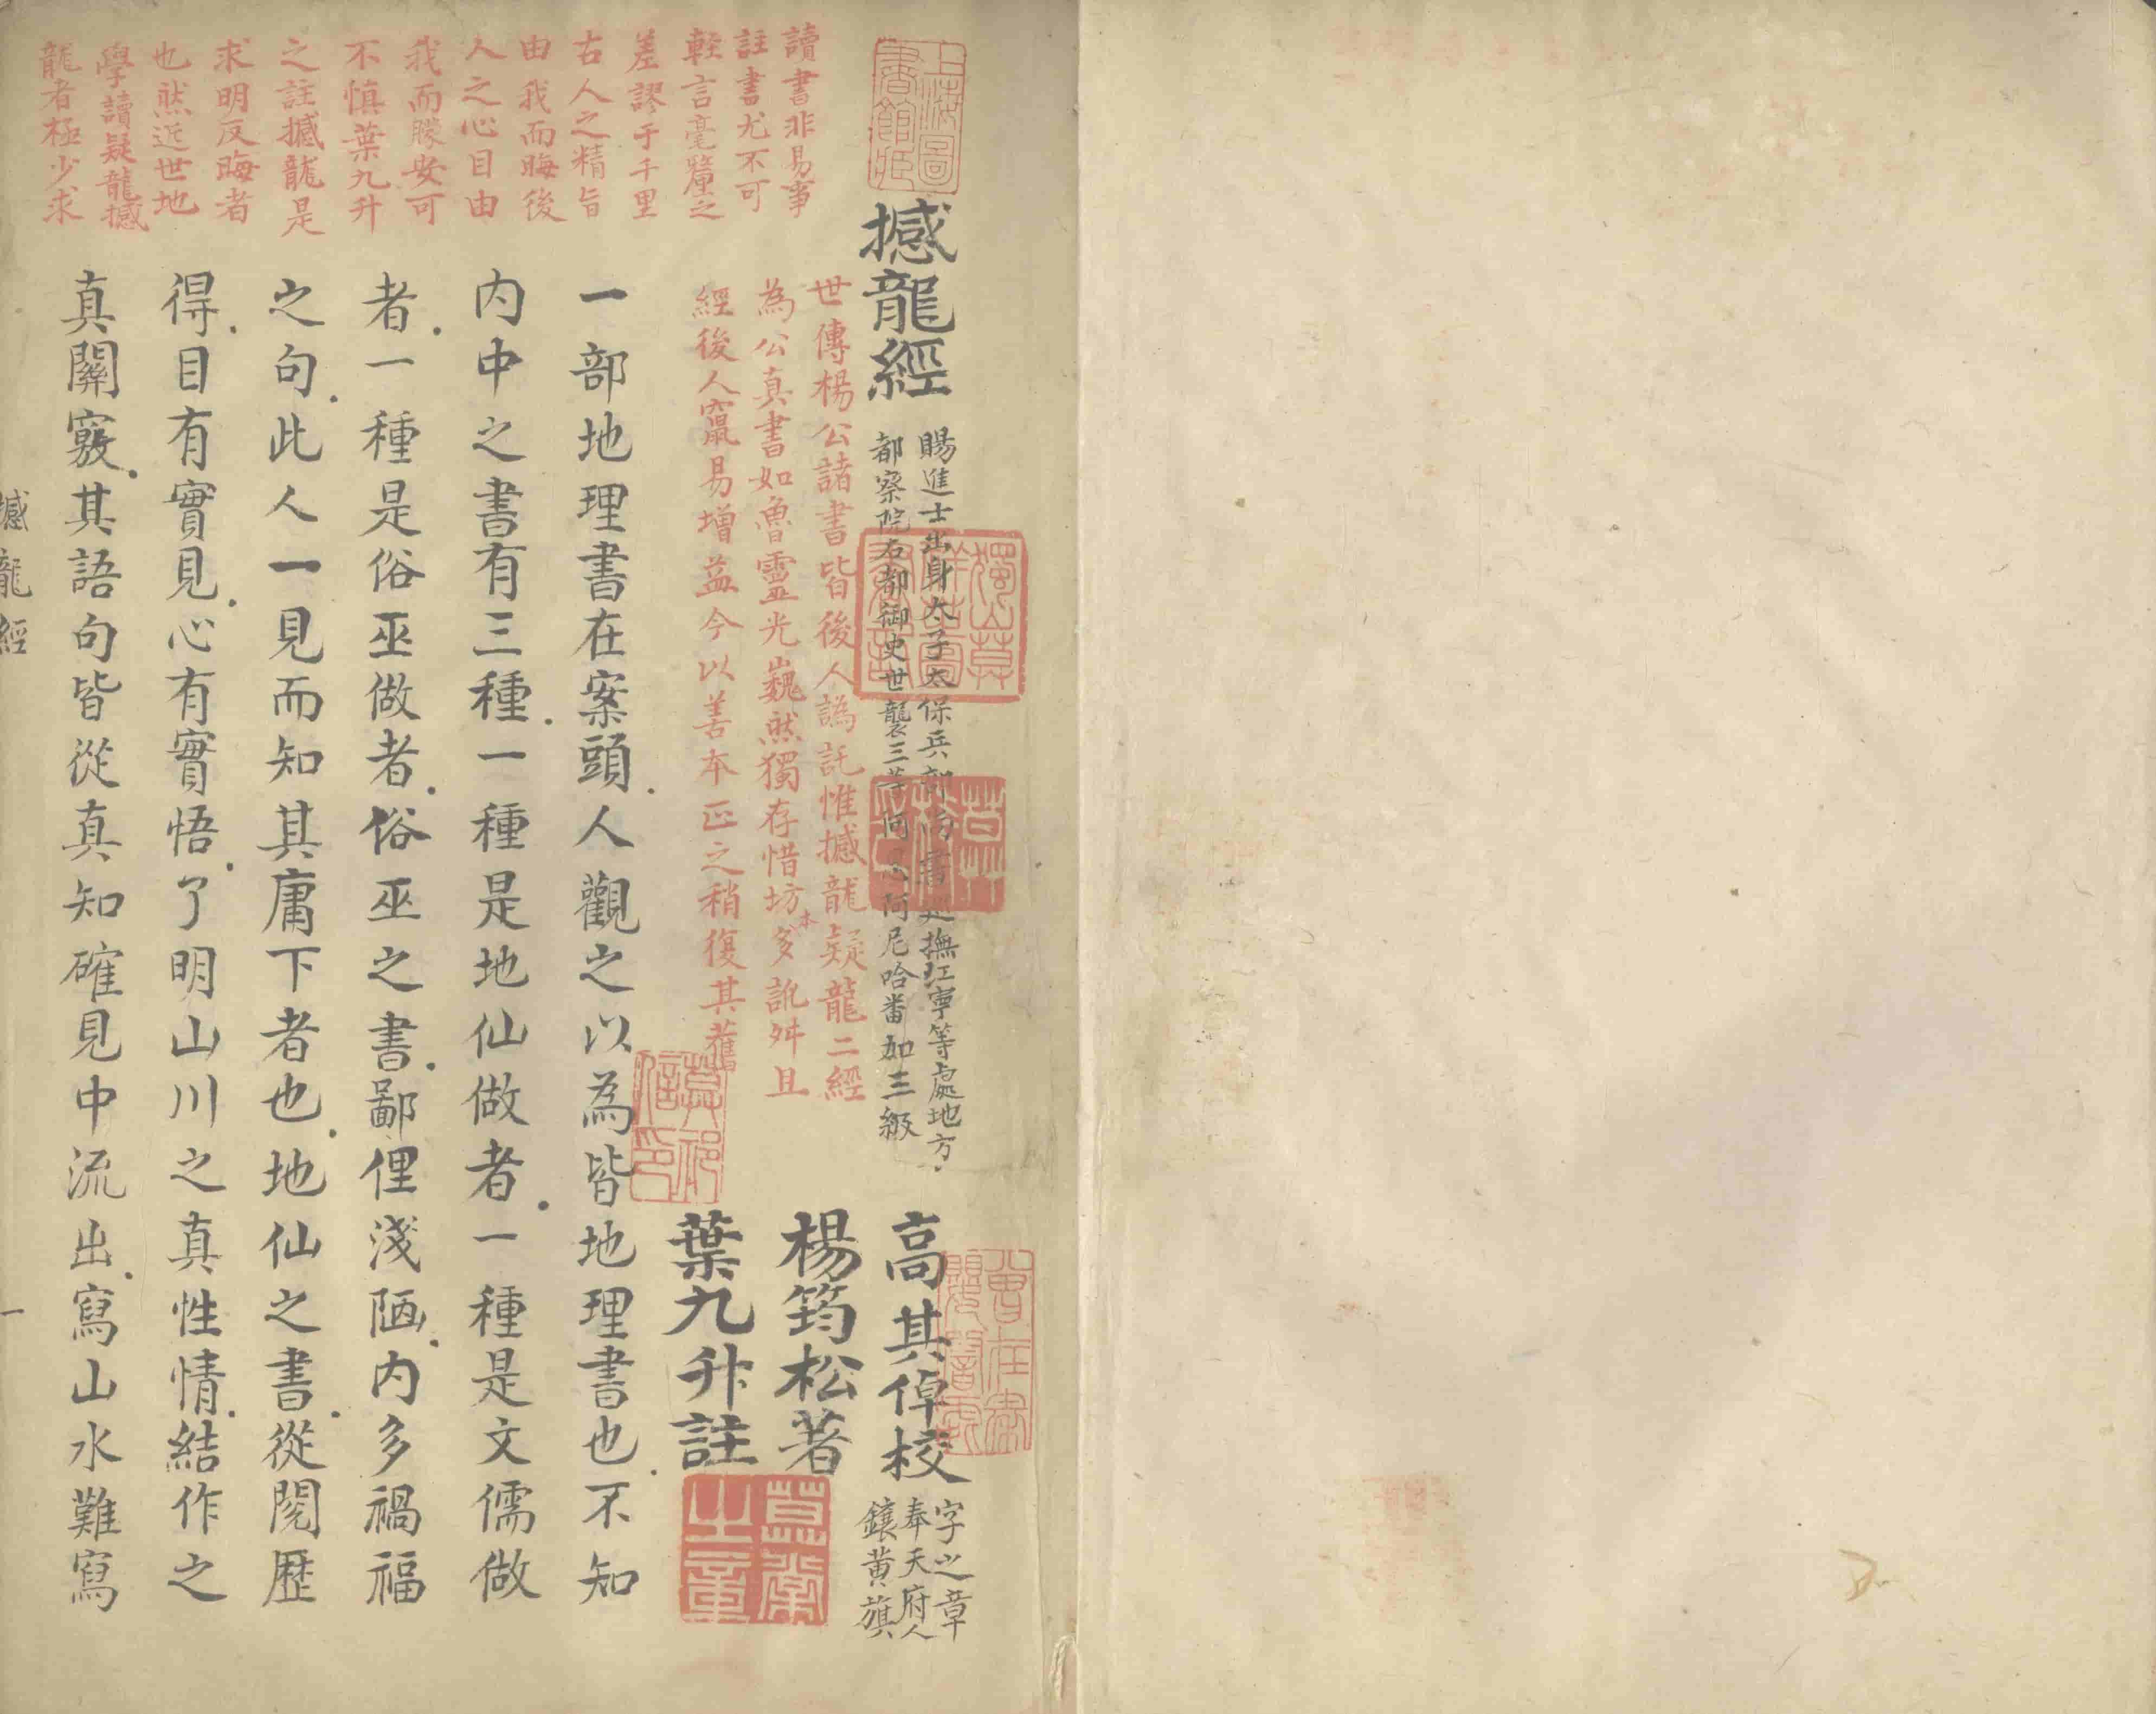 撼龍經
賜進士出身太子太保兵部尚書巡撫江寧等處地方
都察院右都御史世襲三等阿思阿尼哈番加三級
高其倬校
字之章
奉天府人
鑲黃旗
楊筠松著
葉九升註
世傳楊公諸書皆後人譌託惟撼龍疑龍二經
為公真書如魯靈光巍然獨存惜坊本多訛舛且
經後人竄易增益今以善本正之稍復其舊
讀書非易事
註書尤不可
輕言毫釐之
差謬于千里
古人之精旨
由我而晦後
人之心目由
我而矇安可
不慎葉九升
之註撼龍是
求明反晦者
也然近世地
學讀疑龍撼
龍者極少求
一部地理書在案頭人觀之以為皆地理書也不知
内中之書有三種一種是地仙做者一種是文儒做
者一種是俗巫做者俗巫之書鄙俚淺陋内多禍福
之句此人一見而知其庸下者也地仙之書從閱歷
得目有實見心有實悟了明山川之真性情結作之
真關竅其語句皆從真知確見中流出寫山水難寫
撼龍經
一
上海圖書館藏